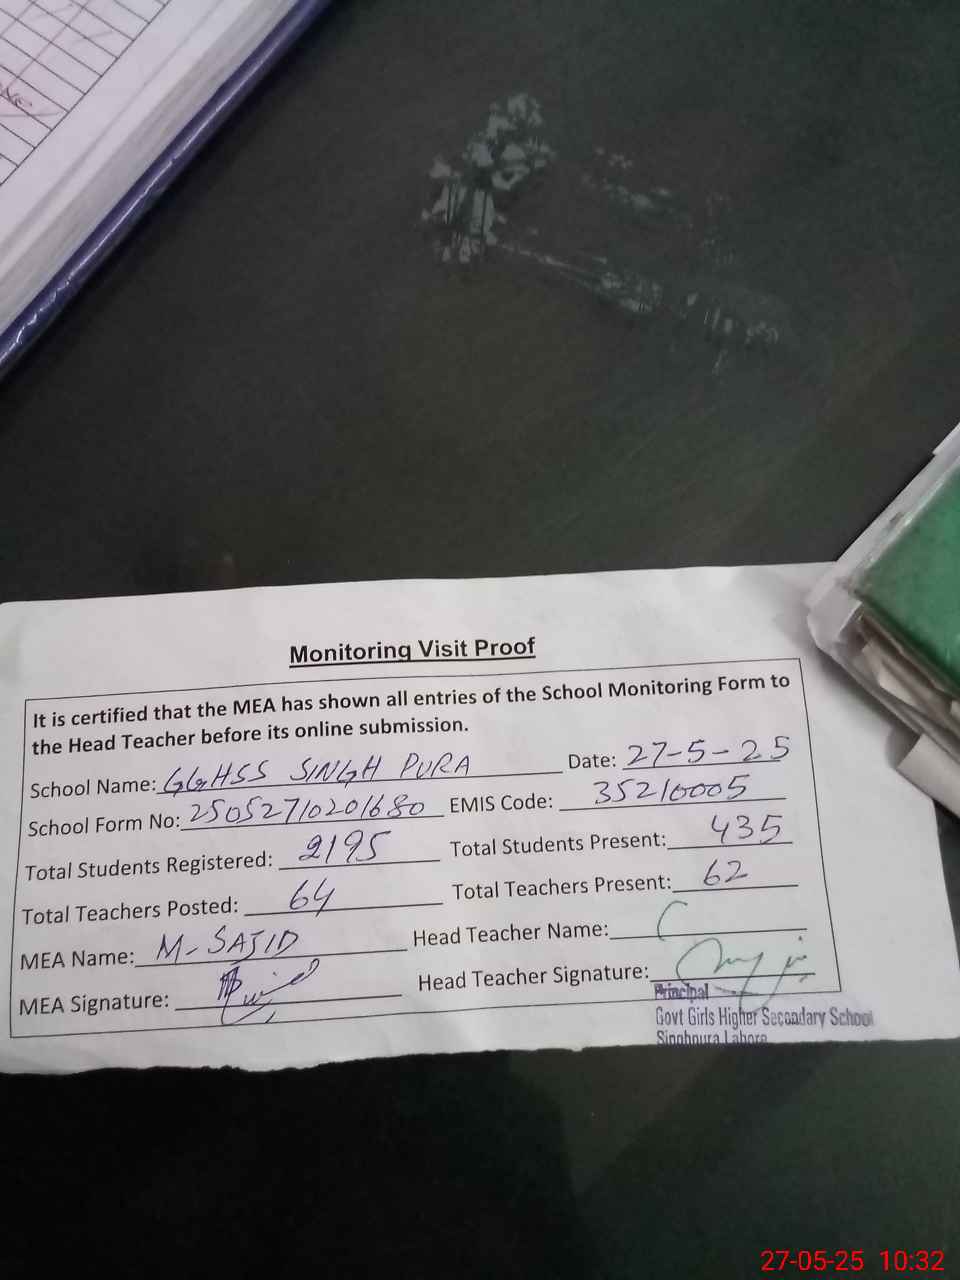 Monitoring Visit Proof
It is certified that the MEA has shown all entries of the School Monitoring Form to
the Head Teacher before its online submission.
School Name: GGHSS SINGH PURA Date: 27-5-25
School Form No: 25052710201680 EMIS Code: 35210005
Total Students Registered: 2195 Total Students Present: 435
Total Teachers Posted: 64 Total Teachers Present: 62
MEA Name: M-SAJID Head Teacher Name:
MEA Signature: Head Teacher Signature:
Principal
Govt Girls Higher Secondary School
Singhpura Lahore
27-05-25 10:32